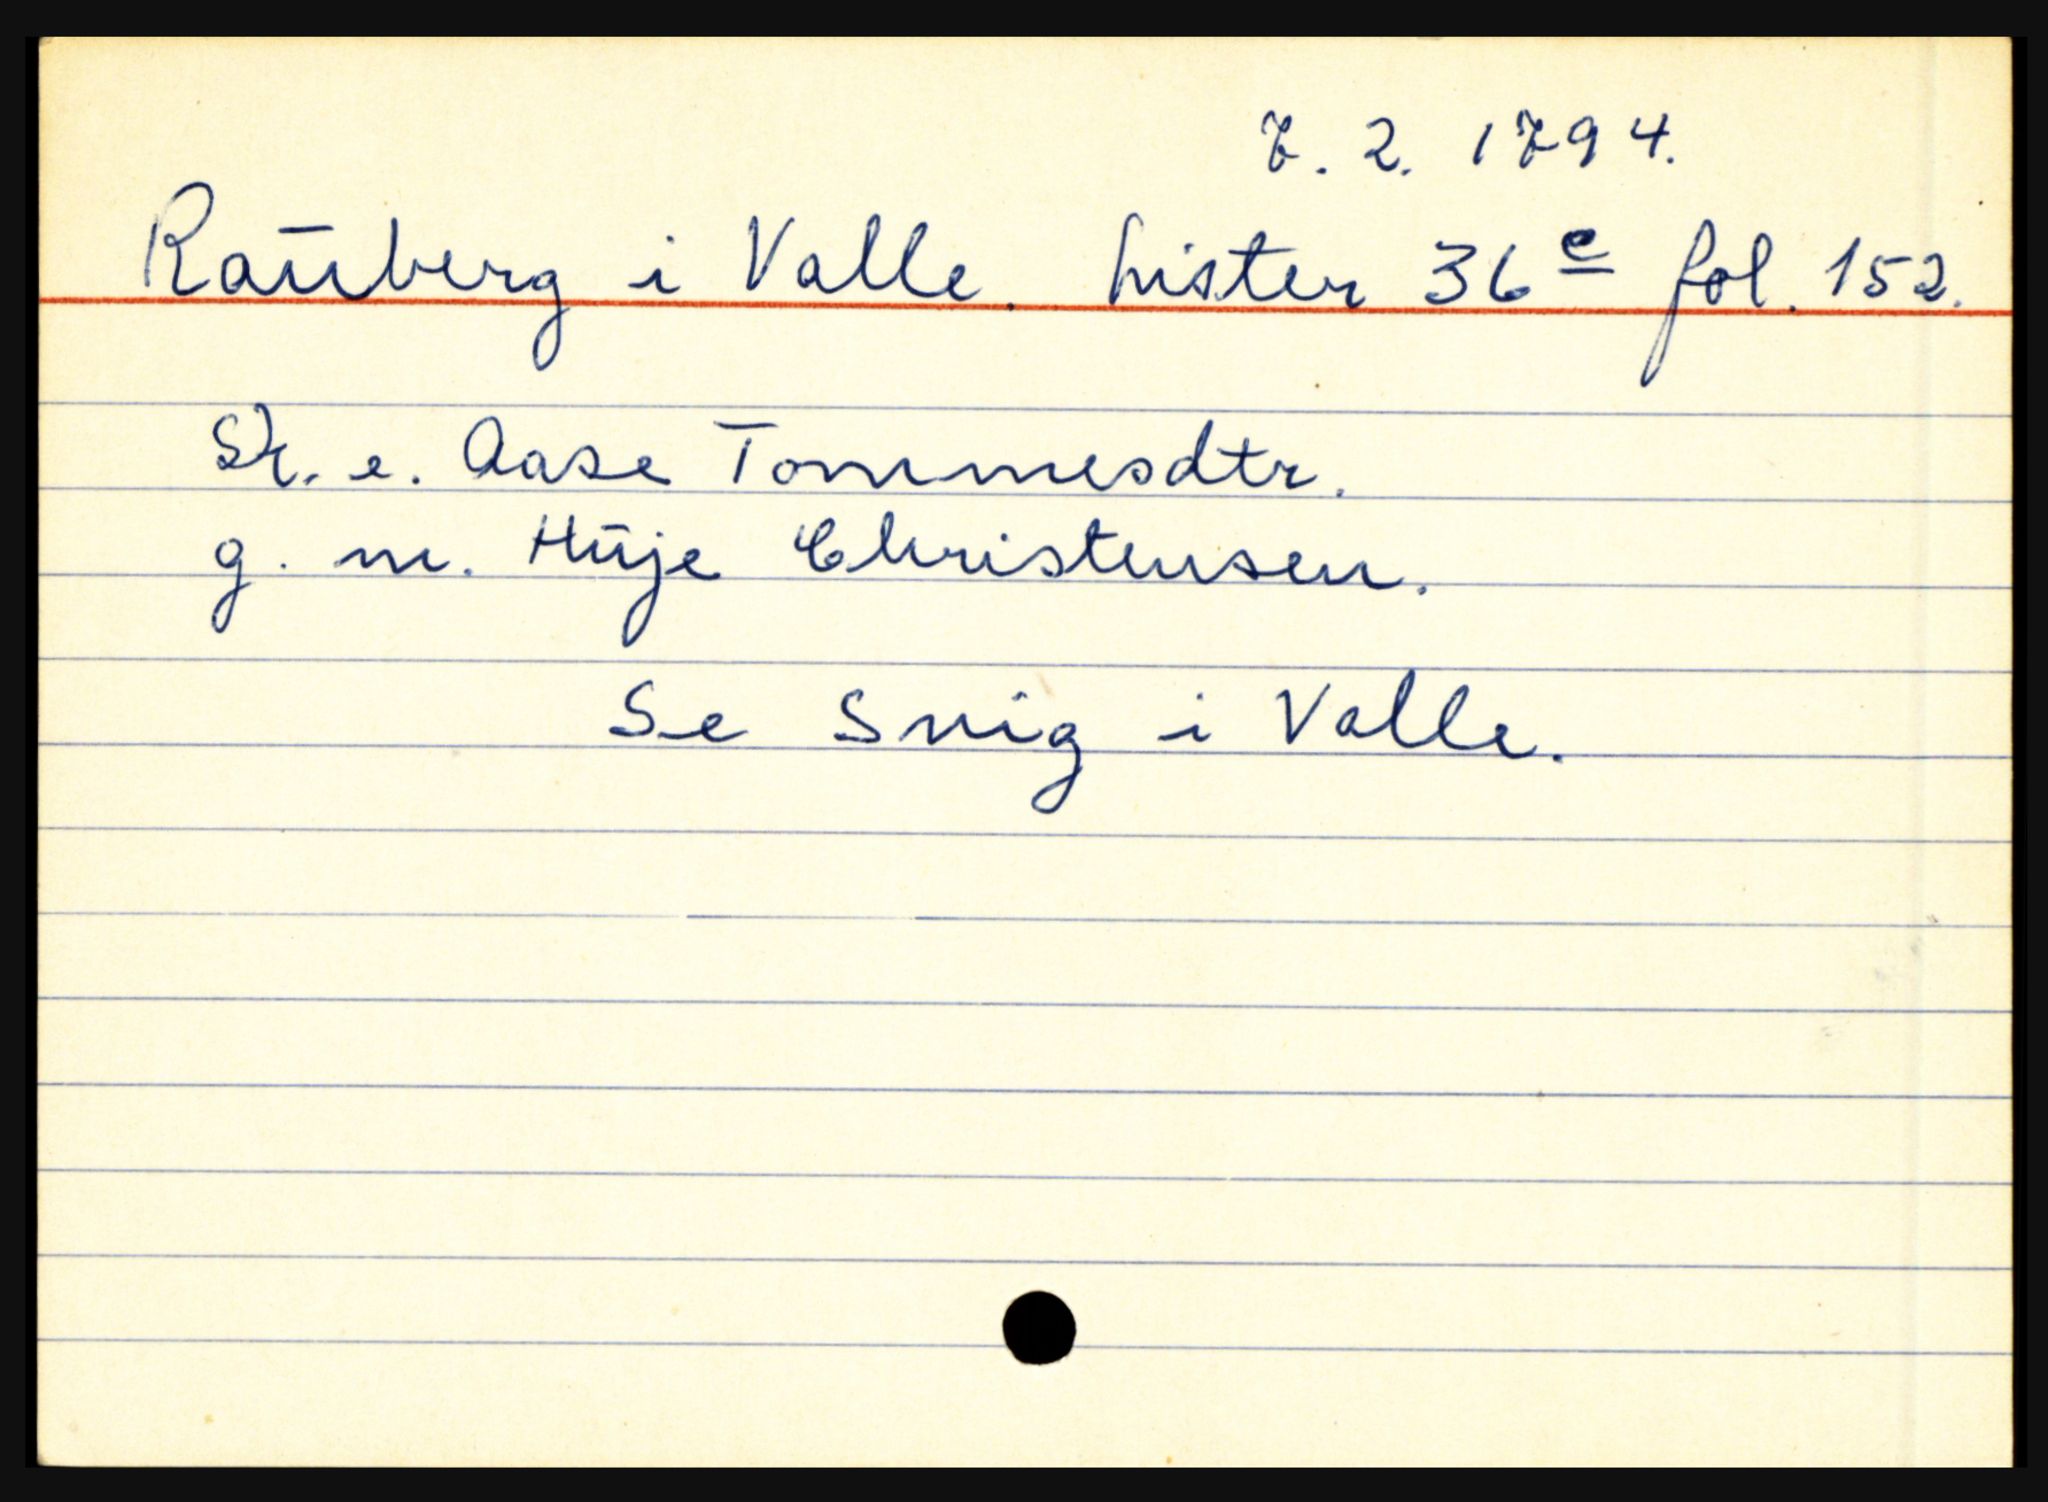 7. 2. 1794.
Raūberg i Valle. Lister 36 e fol. 152.
Sk. e. Aase Tommesdtr.
g. m. Hūje Christensen.
Se Snig i Valle.